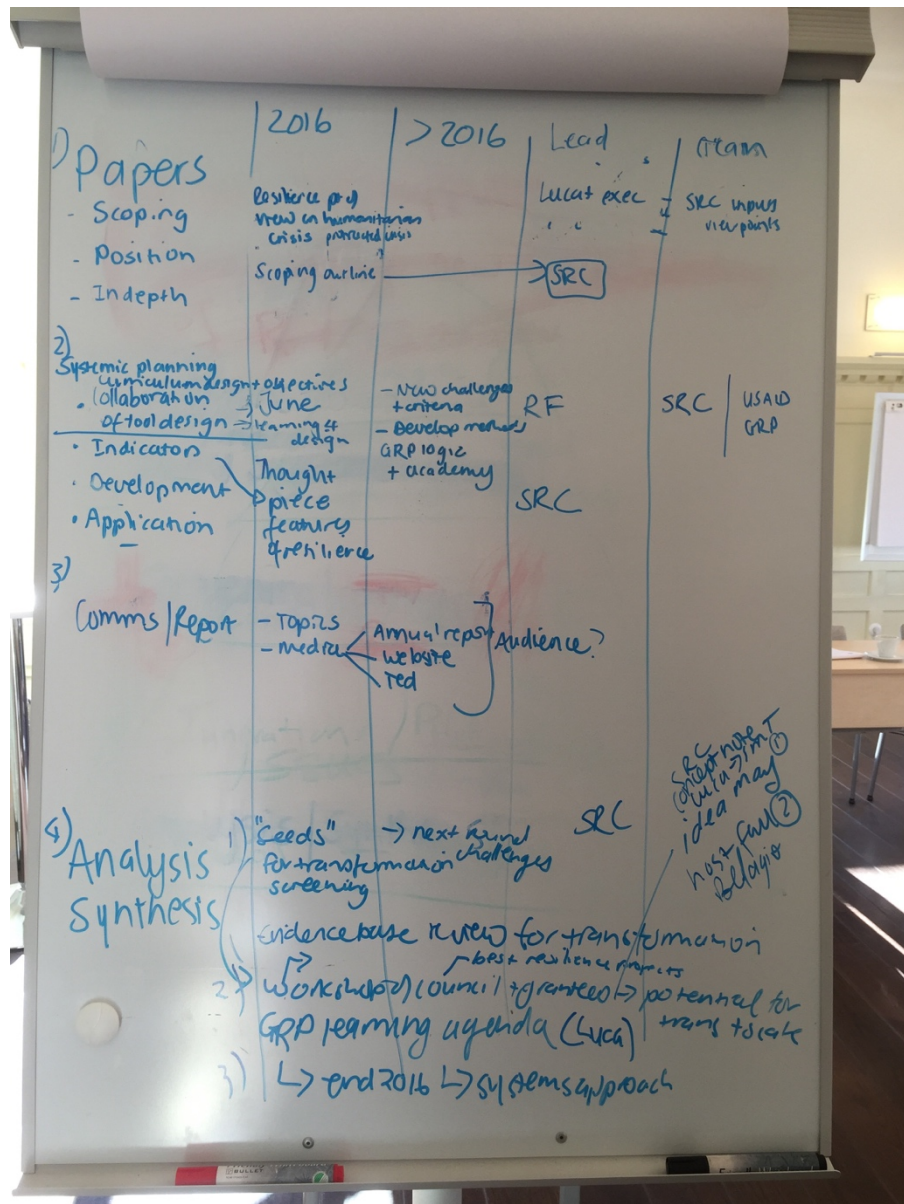 2016
> 2016
Lead
Team
1) Papers
- Scoping
- Position
- Indepth
Resilience
view on humanitarian
crisis protracted crisis
Scoping outline
Luca + exec
SRC inputs
viewpoints
SRC
2)
Systemic planning
curriculum design + objectives
• Collaboration
of tool design
→ June
→ learning &
design
• Indicators
• Development
• Application
Thought
piece
features
of resilience
- New challenges
+ criteria
- Develop methods
GRP logic
+ academy
RF
SRC
SRC
USAID
GRP
3)
Comms/Report
- Topics
- media
Annual report
website
Ted
Audience?
4) Analysis
Synthesis
1) "Seeds"
for transformation
screening
→ next round
challenges
SRC
SRC
concept note
idea may ①
host fall ②
Evidence base review for transformation
best resilience projects
2) council + grantees → potential for
trans + scale
GRP learning agenda (Luca)
3) ↳ end 2016 ↳ systems approach
BULLET